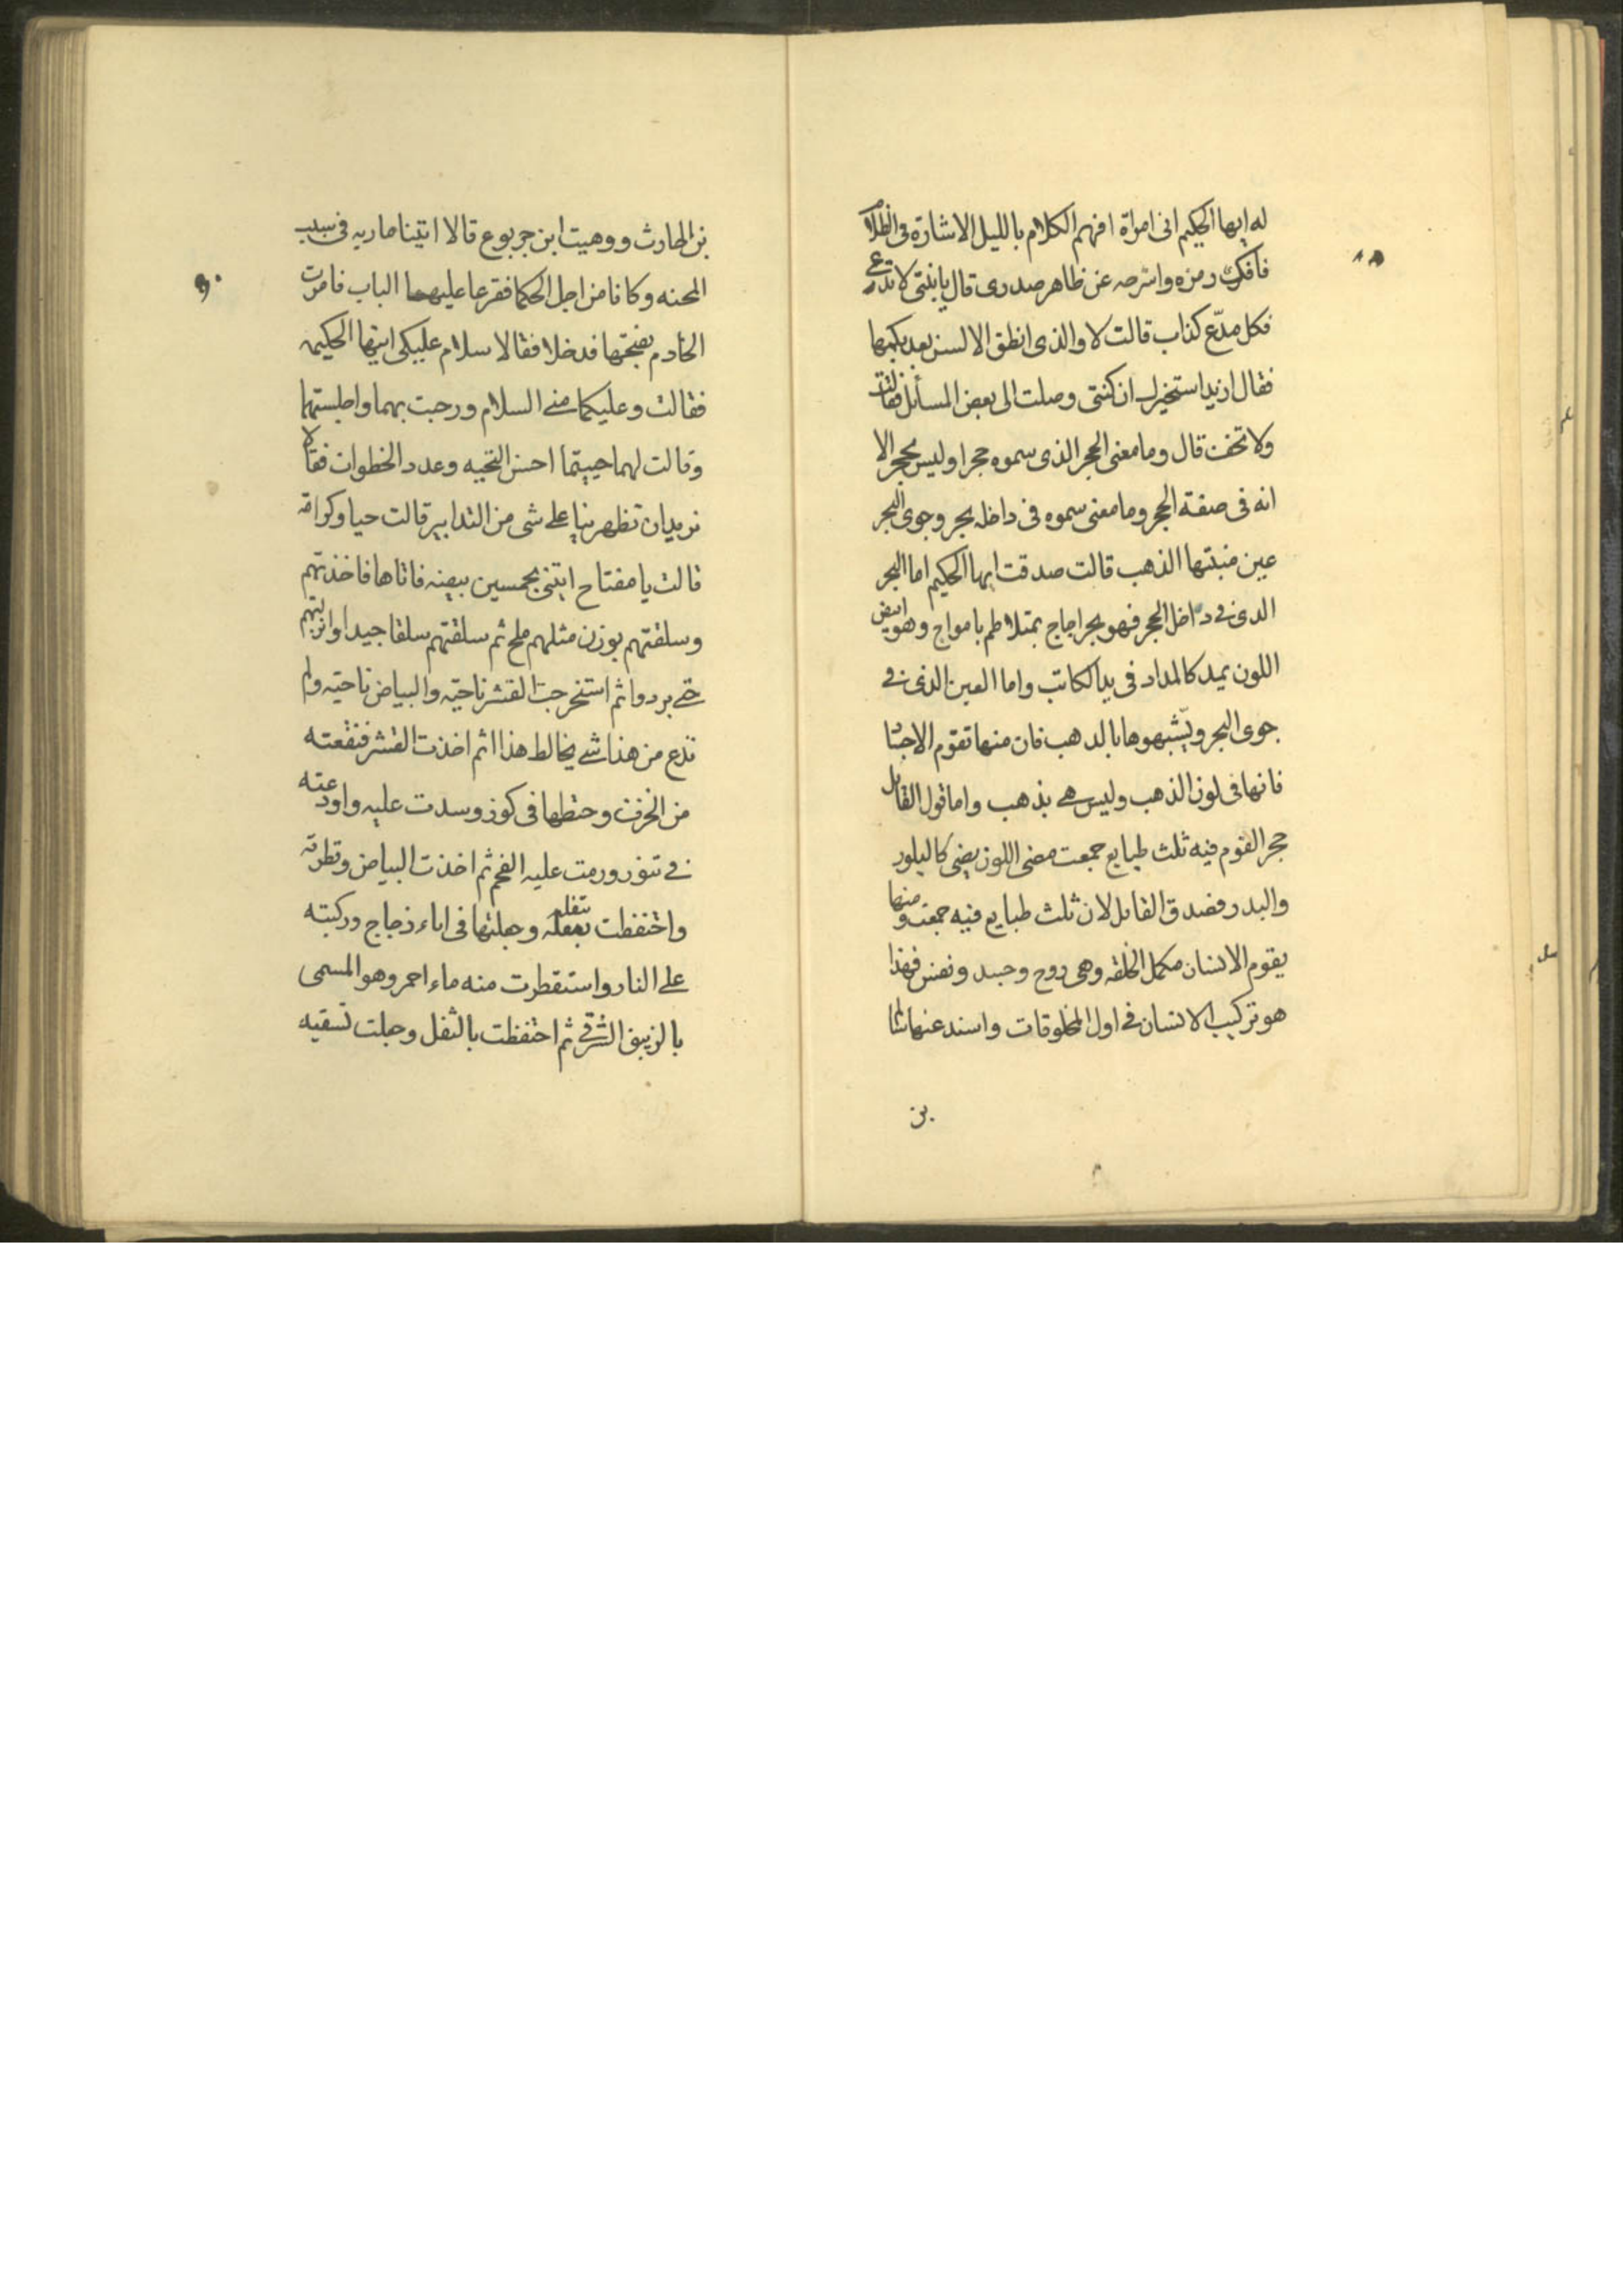 له ايها الحكيم انى امراة افهم الكلام بالليل الاشارة فى الظلام
فافكك رمزه واشرحه عن ظاهر صدرى قال يا بنتى لا تدعى
فكل مدّع كذاب قالت لا والذى انطق الالسن بعد بكمها
فقال اريد استخبرك ان كنتى وصلت الى بعض المسائل فقالت
ولا تخف قال وما معنى الحجر الذى سموه حجرا وليس بحجر الا
انه فى صفة الحجر وما معنى سموه فى داخله بحر وجوى البحر
عين منبتها الذهب قالت صدقت ايها الحكيم اما البحر
الدى فى داخل الحجر فهو بحر اجاج يمتلاطم بامواج وهو ابيض
اللون يميد كالمداد فى يد الكاتب واما العين الذى فى
جوى البحر ويشبهوها بالدهب فان منها تقوم الاجساد
فانها فى لون الذهب وليس هى بذهب واما قول القايل
حجر القوم فيه ثلث طبايع جمعت مضى اللون يضى كالبلور
والبدر فصدق القايل لان ثلث طبايع فيه جمعت ومنها
يقوم الانسان مكمل الخلقه وهى روح وجسد ونفس فهذا
هو تركيب الانسان فى اول المخلوقات واسند عنها
بن
بن الحارث ووهيت ابن جربوع قالا اتينا ماريه فى سبب
المحنه وكانا من اجل الحكما فقرعا عليهما الباب فامرت
الخادم بفتحها فدخلا فقالا سلام عليكى ايتها الحكيمه
فقالت وعليكما منى السلام ورحبت بهما واجلستهما
وقالت لهما حييتما احسن التحيه وعدد الخطوات فقالا
نريد ان تظهرينا على شى من التدابير قالت حبا وكرامة
قالت يا مفتاح ايتنى بخمسين بيضه فاتاها فاخذتهم
وسلقتهم بوزن مثلهم ملح ثم سلقتهم سلقا جيدا وانزلتهم
حتى بردوا ثم استخرجت القشر ناحيه والبياض ناحيه ولم
تدع من هذا شى يخالط هذا ثم اخذت القشر فنقعته
من الخرفت وحطها فى كوز وسدت عليه واودعته
فى تنور ورمت عليه الفحم ثم اخذت البياض وقطرته
واحتفظت بثفله وجعلتها فى اناء زجاج وركبته
على النار واستقطرت منه ماء احمر وهو المسمى
بالزيبق الشرقى ثم احتفظت بالثفل وجعلت تسقيه